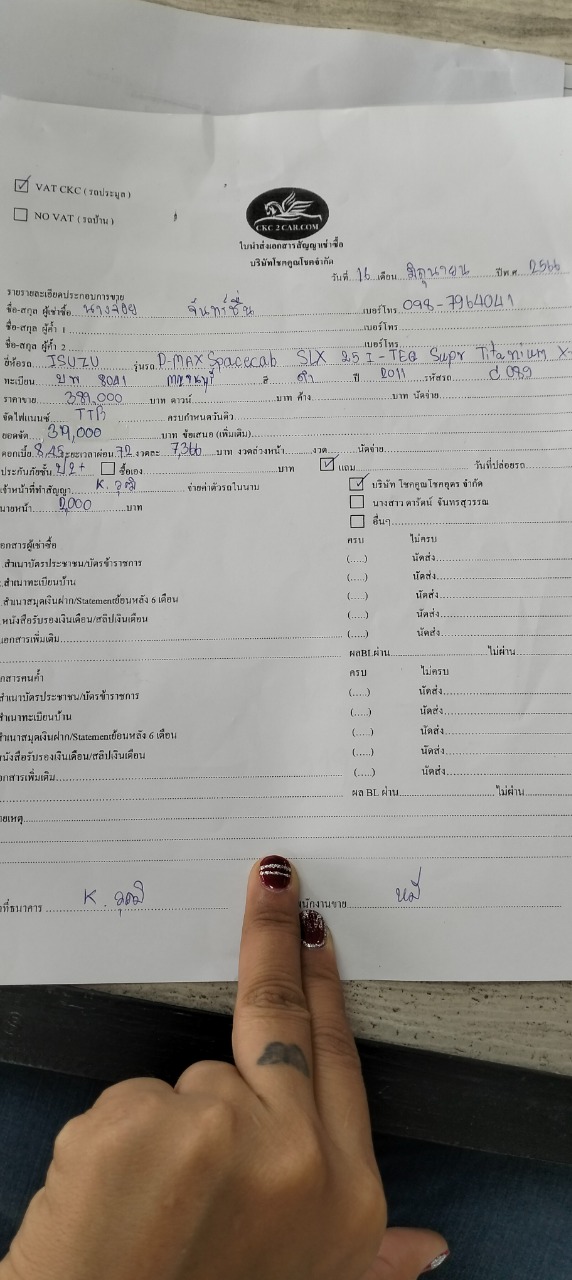 VAT CKC ( รถประมูล )
NO VAT ( รถบ้าน )
CKC 2 CAR.COM
ใบนำส่งเอกสารสัญญาเช่าซื้อ
บริษัทโชคคูณโชคจำกัด
วันที่ 16 เดือน มิถุนายน ปีพ.ศ. 2566
รายรายละเอียดประกอบการขาย
ชื่อ-สกุล ผู้เช่าซื้อ จันทร์ชื่น เบอร์โทร 098-7964041
ชื่อ-สกุล ผู้ค้ำ 1 เบอร์โทร
ชื่อ-สกุล ผู้ค้ำ 2 เบอร์โทร
ยี่ห้อรถ ISUZU รุ่นรถ D-MAX Spacecab SLX 2.5 I-TEQ Supr Titanium X-
ทะเบียน 8041 สี ดำ ปี 2011 รหัสรถ d 089
ราคาขาย บาท ดาวน์ บาท ค้าง บาท นัดจ่าย
จัดไฟแนนซ์ TTB ครบกำหนดวันคิว
ยอดจัด 319,000 บาท ข้อเสนอ (เพิ่มเติม)
ดอกเบี้ย 8.45 ระยะเวลาผ่อน 72 งวดละ 7,366 บาท งวดล่วงหน้า งวด นัดจ่าย
ประกันภัยชั้น 2+ ซื้อเอง บาท แถม วันที่ปล่อยรถ
เจ้าหน้าที่ทำสัญญา K. วุฒิ จ่ายค่าตัวรถในนาม บริษัท โชคคูณโชคอุดร จำกัด
นายหน้า บาท นางสาว ดารัตน์ จันทรสุวรรณ
อื่นๆ
เอกสารผู้เช่าซื้อ ครบ ไม่ครบ
สำเนาบัตรประชาชน/บัตรข้าราชการ (.....) นัดส่ง
สำเนาทะเบียนบ้าน (.....) นัดส่ง
สำเนาสมุดเงินฝาก/Statementย้อนหลัง 6 เดือน (.....) นัดส่ง
หนังสือรับรองเงินเดือน/สลิปเงินเดือน (.....) นัดส่ง
เอกสารเพิ่มเติม (.....) นัดส่ง
ผลBLผ่าน ไม่ผ่าน
กสารคนค้ำ ครบ ไม่ครบ
สำเนาบัตรประชาชน/บัตรข้าราชการ (.....) นัดส่ง
สำเนาทะเบียนบ้าน (.....) นัดส่ง
สำเนาสมุดเงินฝาก/Statementย้อนหลัง 6 เดือน (.....) นัดส่ง
นังสือรับรองเงินเดือน/สลิปเงินเดือน (.....) นัดส่ง
อกสารเพิ่มเติม (.....) นัดส่ง
ผล BL ผ่าน ไม่ผ่าน
ายเหตุ
าที่ธนาคาร K. วุฒิ นักงานขาย หมี